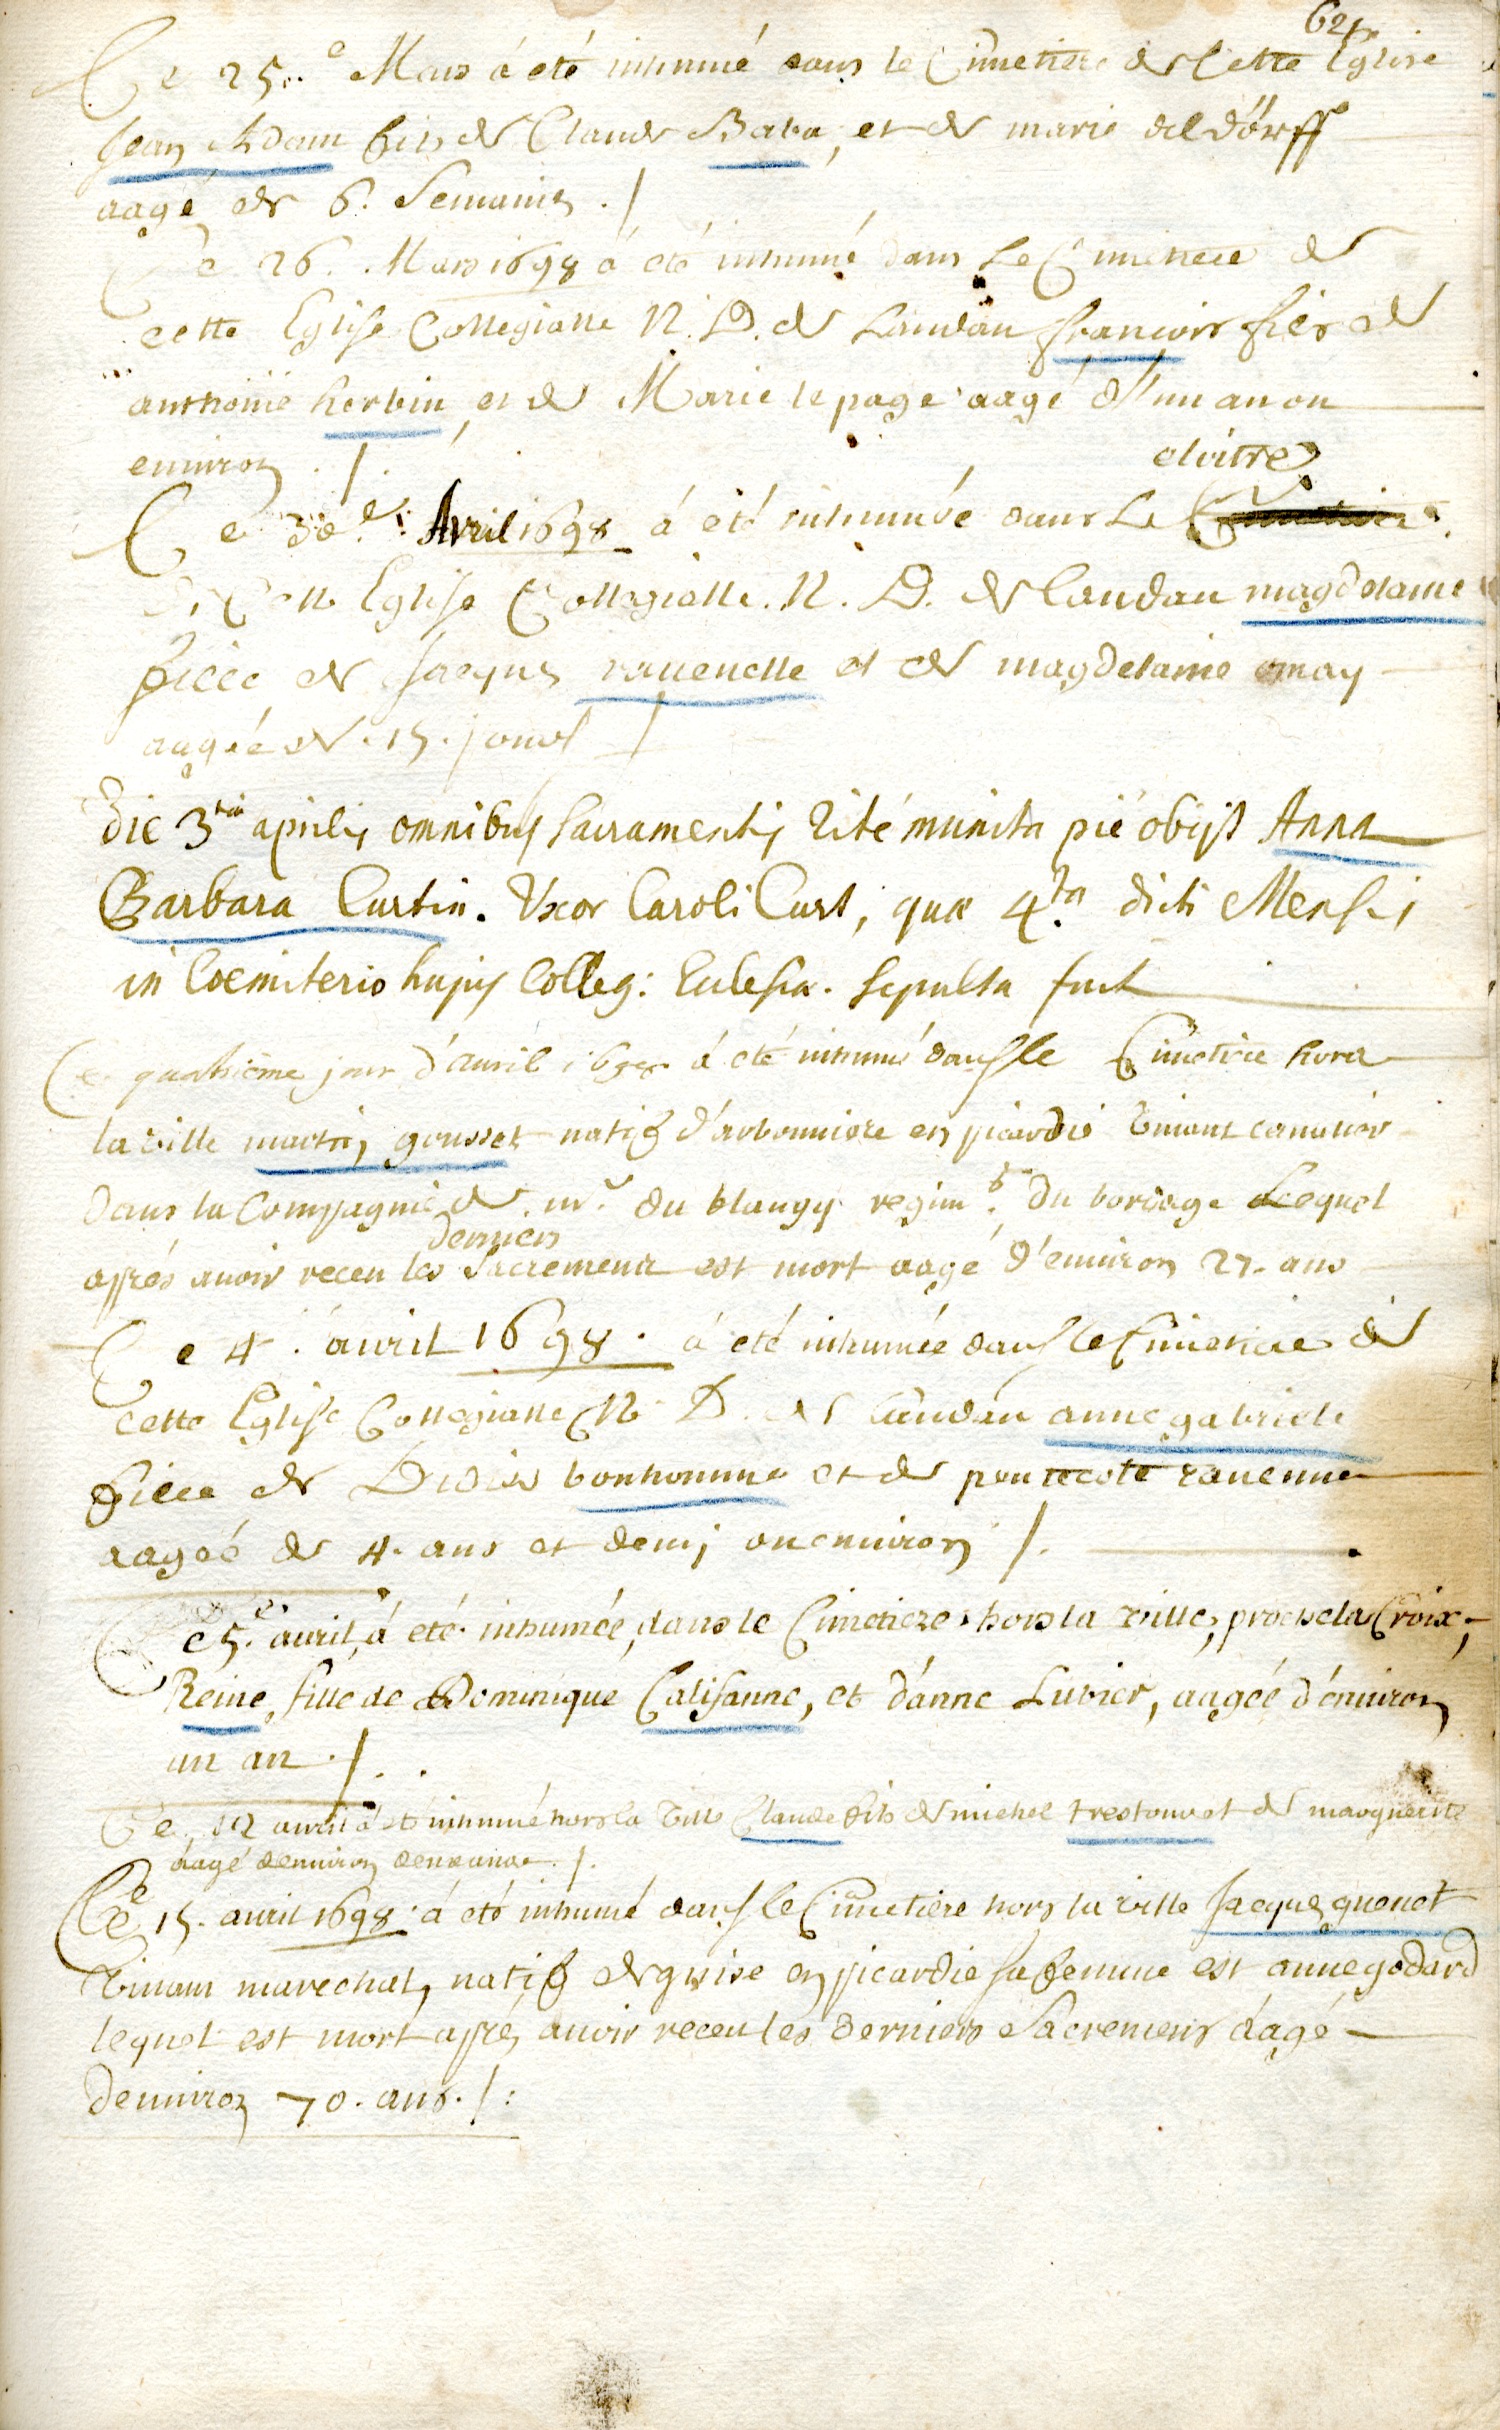 624
Ce 25.e Mars á été inhumé dans le Cimetiere de Cette Eglise
Jean Adam fils de Claude Baba, et de marie deldörff
aagé de 6. Semaines ./
Ce 26. Mars 1698 á été inhumé dans Le Cimetiere de
cette Eglise Collegialle N. D. de Landau francois fils de
anthoine herbin et de Marie lepage aagé d'un an ou
enuiron ./.
cloitre
Ce 3e. Avril 1698 á été inhumée dans Le
de Cette Eglise Collegialle. N. D. de landau magdelaine
fille de Jacques rauenelle et de magdelaine may
aagée de .15. jours /
Die 3tia aprilis omnibus Sacramentis rité munita pié obijt Anna
Barbara Curtin. Uxor Caroli Curt, quae 4.ta dicti Mensis
in Coemiterio hujus Colleg: Ecclesiae. Sepulta fuit
Ce quatriéme jour d'auril 1698 á été inhumé dans le Cimetiere hors
la ville martin gousset natif d'arbonniere en picardie viuant canonier
dans la Compagnie de mr. du blangy regimt. du bordage Lequel
derniers
aprés auoir receu les Sacremens est mort aagé d'enuiron 27. ans
Ce 4. auril 1698. á été inhumée dans le Cimetiere de
cette Eglise Collegialle N. D. de landau anne gabriele
fille de Didier bonhomme et de pentecote rauenne
aageé de 4. ans et demj ou enuiron /.
Ce 5.e auril á été inhumée, dans le Cimetiere hors la ville, proche la Croix,
Reine, fille de Dominique Calisanne, et d'anne Luvier, aageé d'enuiron
un an ./.
Ce 12 auril a été inhumé hors la ville Claude fils de michel trestouret de marguerite
aagé denuiron deux ans ./.
Ce 15. auril 1698 á été inhumé dans le Cimetiere hors la ville Jacques quenet
viuant marechal, natif de guise en picardie sa femme est anne godard
lequel est mort aprés auoir receu les derniers Sacremens aagé
denuiron 70. ans ./: